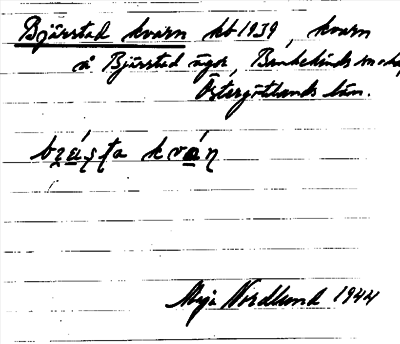 Bjärstad kvarn kb 1939, kvarn
å Bjärstad ägor, Bankekinds sn
Östergötlands län.
kván
Maja Nordlund 1944